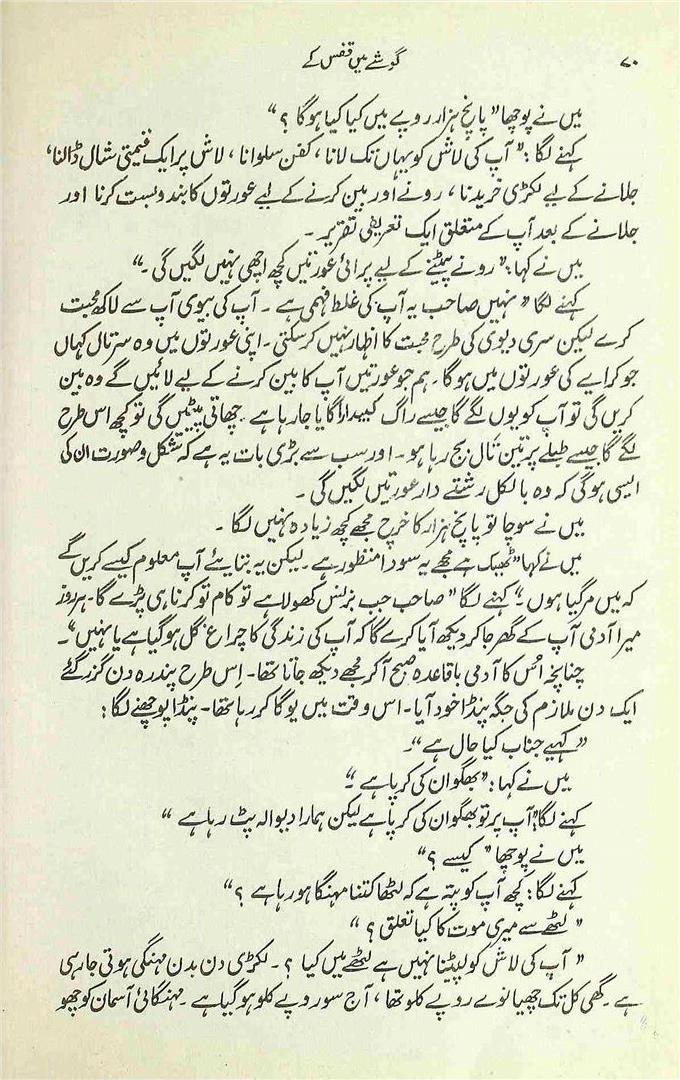 ۷۰
گوشے میں قفس کے
میں نے پوچھا ”پانچ ہزار روپے میں کیا کیا ہوگا ؟ “
کہنے لگا : ”آپ کی لاش کو یہاں تک لانا ، کفن سلوانا ، لاش پر ایک قیمتی شال ڈالنا ،
جلانے کے لیے لکڑی خریدنا ، رونے اور بین کرنے کے لیے عورتوں کا بندوبست کرنا اور
جلانے کے بعد آپ کے متعلق ایک تعریفی تقریر ۔
میں نے کہا : ”رونے پیٹنے کے لیے پرائی عورتیں کچھ اچھی نہیں لگیں گی ۔“
کہنے لگا ” نہیں صاحب یہ آپ کی غلط فہمی ہے ۔ آپ کی بیوی آپ سے لاکھ محبت
کرے لیکن سری دیوی کی طرح محبت کا اظہار نہیں کر سکتی ۔ اپنی عورتوں میں وہ سر تال کہاں
جو کرایے کی عورتوں میں ہوگا ۔ ہم جو عورتیں آپ کا بین کرنے کے لیے لائیں گے وہ بین
کریں گی تو آپ کو یوں لگے گا جیسے راگ کیدارا گایا جا رہا ہے ۔ چھاتی پیٹیں گی تو کچھ اس طرح
لگے گا جیسے طبلے پر تین تال بج رہا ہو ۔ اور سب سے بڑی بات یہ ہے کہ شکل و صورت ان کی
ایسی ہوگی کہ وہ بالکل رشتے دار عورتیں لگیں گی ۔
میں نے سوچا تو پانچ ہزار کا خرچ مجھے کچھ زیادہ نہیں لگا ۔
میں نے کہا ”ٹھیک ہے مجھے یہ سودا منظور ہے ۔ لیکن یہ بتائیے آپ معلوم کیسے کریں گے
کہ میں مر گیا ہوں ۔“ کہنے لگا ” صاحب جب بزنس کھولا ہے تو کام تو کرنا ہی پڑے گا ۔ ہر روز
میرا آدمی آپ کے گھر جا کر دیکھ آیا کرے گا کہ آپ کی زندگی کا چراغ گل ہو گیا ہے یا نہیں “۔
چنانچہ اُس کا آدمی باقاعدہ صبح آ کر مجھے دیکھ جاتا تھا ۔ اِس طرح پندرہ دن گزر گئے
ایک دن ملازم کی جگہ پنڈا خود آیا ۔ اس وقت میں یوگا کر رہا تھا ۔ پنڈا پوچھنے لگا :
” کہیے جناب کیا حال ہے “۔
میں نے کہا : ”بھگوان کی کرپا ہے ۔“
کہنے لگا ”آپ پر تو بھگوان کی کرپا ہے لیکن ہمارا دیوالہ پٹ رہا ہے “
میں نے پوچھا ” کیسے ؟ “
کہنے لگا : کچھ آپ کو پتہ ہے کہ لٹھا کتنا مہنگا ہو رہا ہے ؟ “
” لٹھے سے میری موت کا کیا تعلق ؟ “
” آپ کی لاش کو لپیٹنا نہیں ہے لٹھے میں کیا ؟ ۔ لکڑی دن بدن مہنگی ہوتی جا رہی
ہے ۔ گھی کل تک چھیانوے روپے کلو تھا ، آج سو روپے کلو ہو گیا ہے ۔ مہنگائی آسمان کو چھو